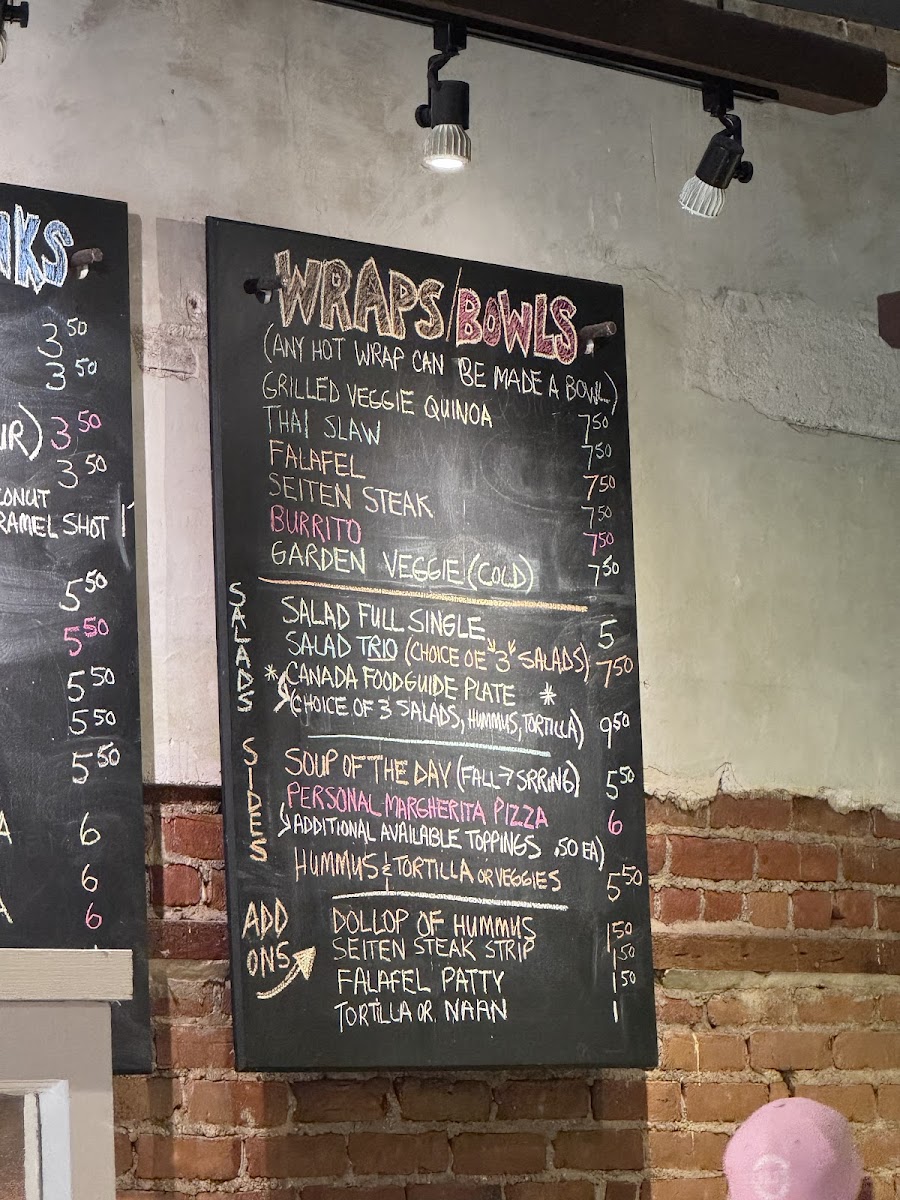 NKS
3 50
3 50
UR) 3 50
3 50
CONUT
RAMEL SHOT 1
5 50
5 50
5 50
5 50
5 50
A 6
6
A 6
WRAPS/BOWLS
(ANY HOT WRAP CAN BE MADE A BOWL)
GRILLED VEGGIE QUINOA 7 50
THAI SLAW 7 50
FALAFEL 7 50
SEITEN STEAK 7 50
BURRITO 7 50
GARDEN VEGGIE (COLD) 7 50
SALADS
SALAD FULL SINGLE 5
SALAD TRIO (CHOICE OF "3" SALADS) 7 50
* CANADA FOODGUIDE PLATE *
(CHOICE OF 3 SALADS, HUMMUS, TORTILLA) 9 50
SIDES
SOUP OF THE DAY (FALL → SPRING) 5 50
PERSONAL MARGHERITA PIZZA 6
ADDITIONAL AVAILABLE TOPPINGS .50 EA)
HUMMUS & TORTILLA OR VEGGIES 5 50
ADD
ONS
DOLLOP OF HUMMUS 1 50
SEITEN STEAK STRIP 1 50
FALAFEL PATTY 1 50
TORTILLA OR NAAN 1